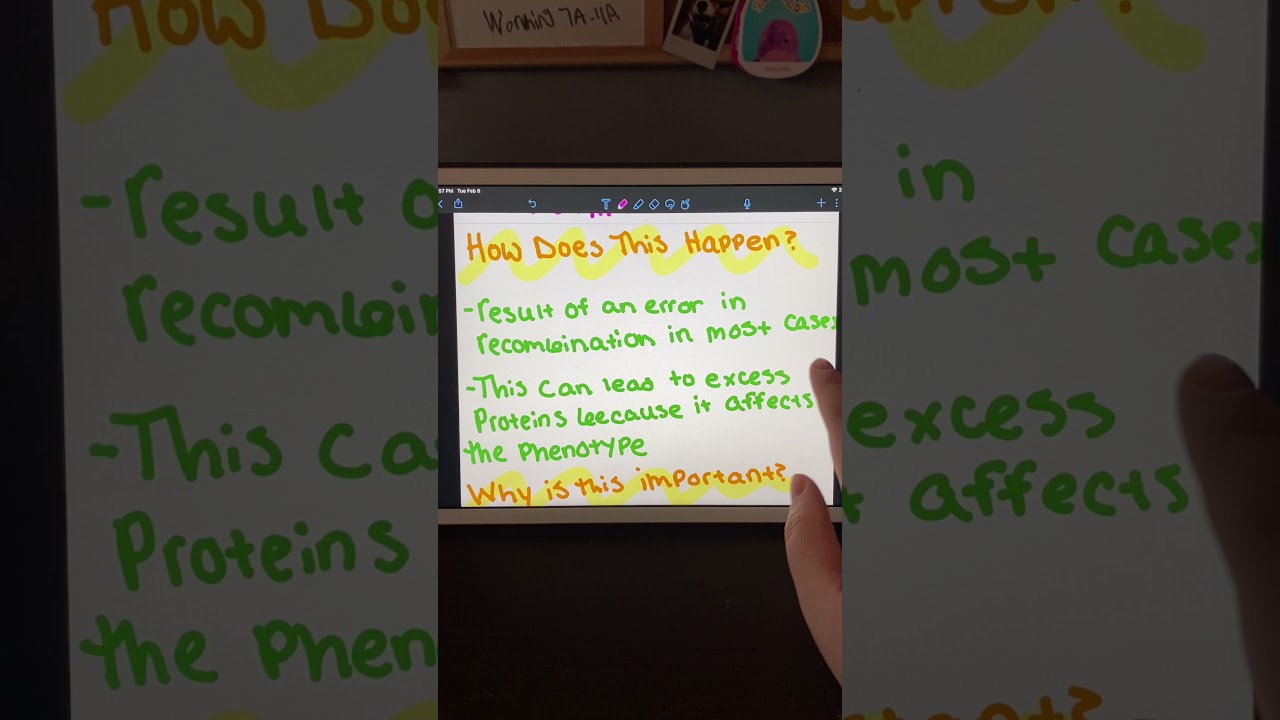 Working 7A-11A
57 PM Tue Feb 8
How Does This Happen?
-result of an error in
recombination in most cases
-This can lead to excess
Proteins because it affects
the phenotype
Why is this important?